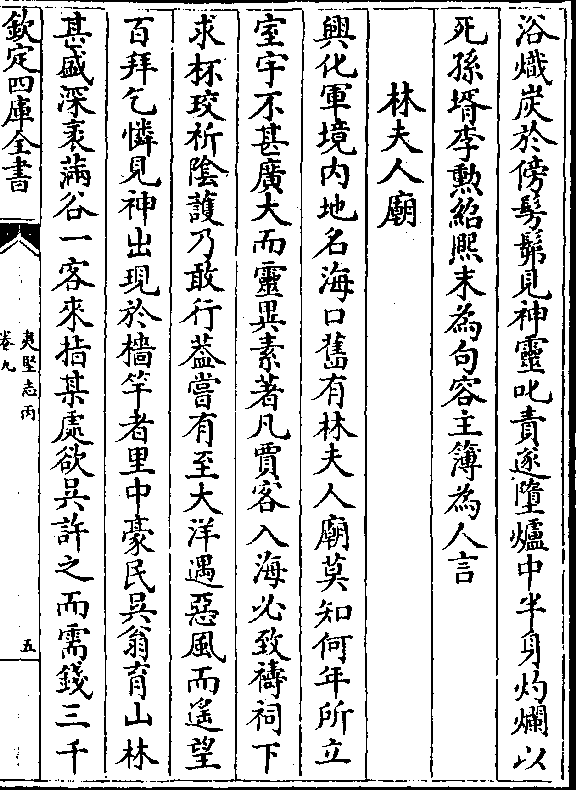 浴熾炭於傍髣髴見神靈叱責遂墮爐中半身灼爛以
死孫壻李勲紹熙末為句容主簿為人言
林夫人廟
興化軍境内地名海口舊有林夫人廟莫知何年所立
室宇不甚廣大而靈異素著凡賈客入海必致禱祠下
求杯珓祈陰護乃敢行葢嘗有至大洋遇惡風而遙望
百拜乞憐見神出現於檣竿者里中豪民吳翁育山林
甚盛深袤滿谷一客來指某處欲吳許之而需錢三千
欽定四庫全書
夷堅志丙
卷九
五